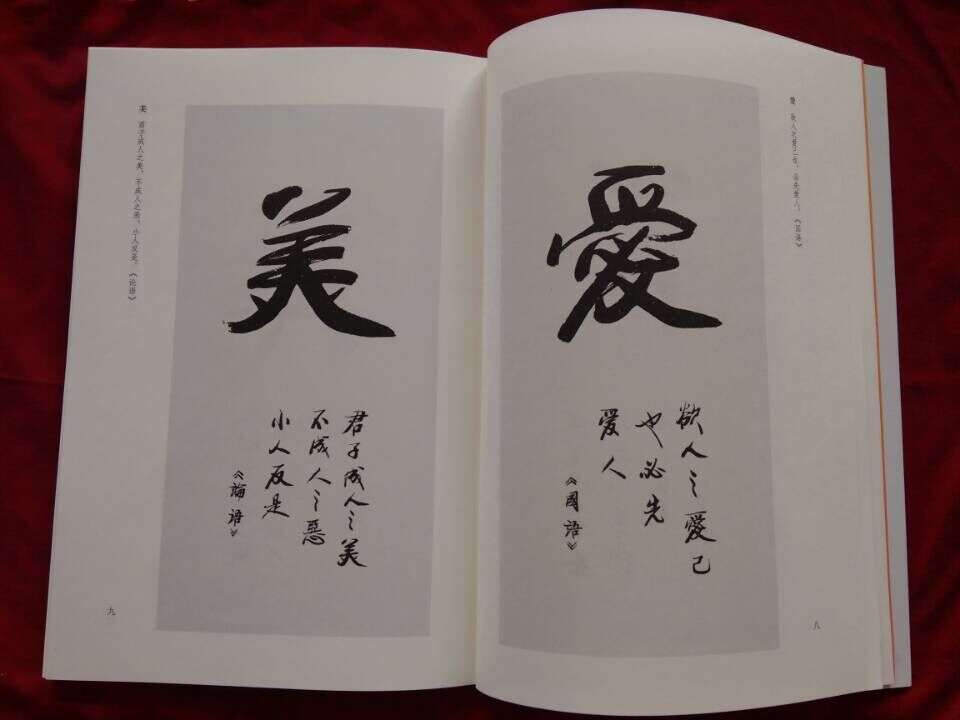 愛 欲人之爱己也，必先爱人。《国语》
愛
欲人之愛己
也必先
爱人
《國語》
八
美 君子成人之美，不成人之恶。小人反是。《论语》
美
君子成人之美
不成人之惡
小人反是
《論语》
九